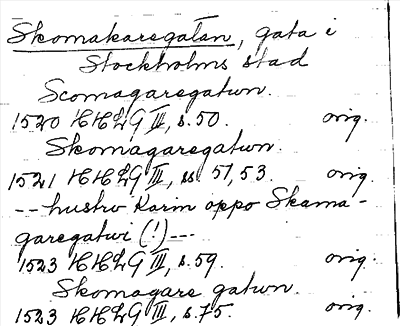 Skomakaregatan, gata i
Stockholms stad
Scomagaregatun.
1520 HHLG III, s. 50. orig.
Skomagaregatun.
1521 HHLG III, ss. 51, 53. orig.
-- hustro Karin oppo Skama-
garegatwi (!) ---
1523 HHLG III, s. 59. orig.
Skomagare gatun.
1523 HHLG III, s. 75. orig.